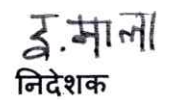 इ.माला
निदेशक